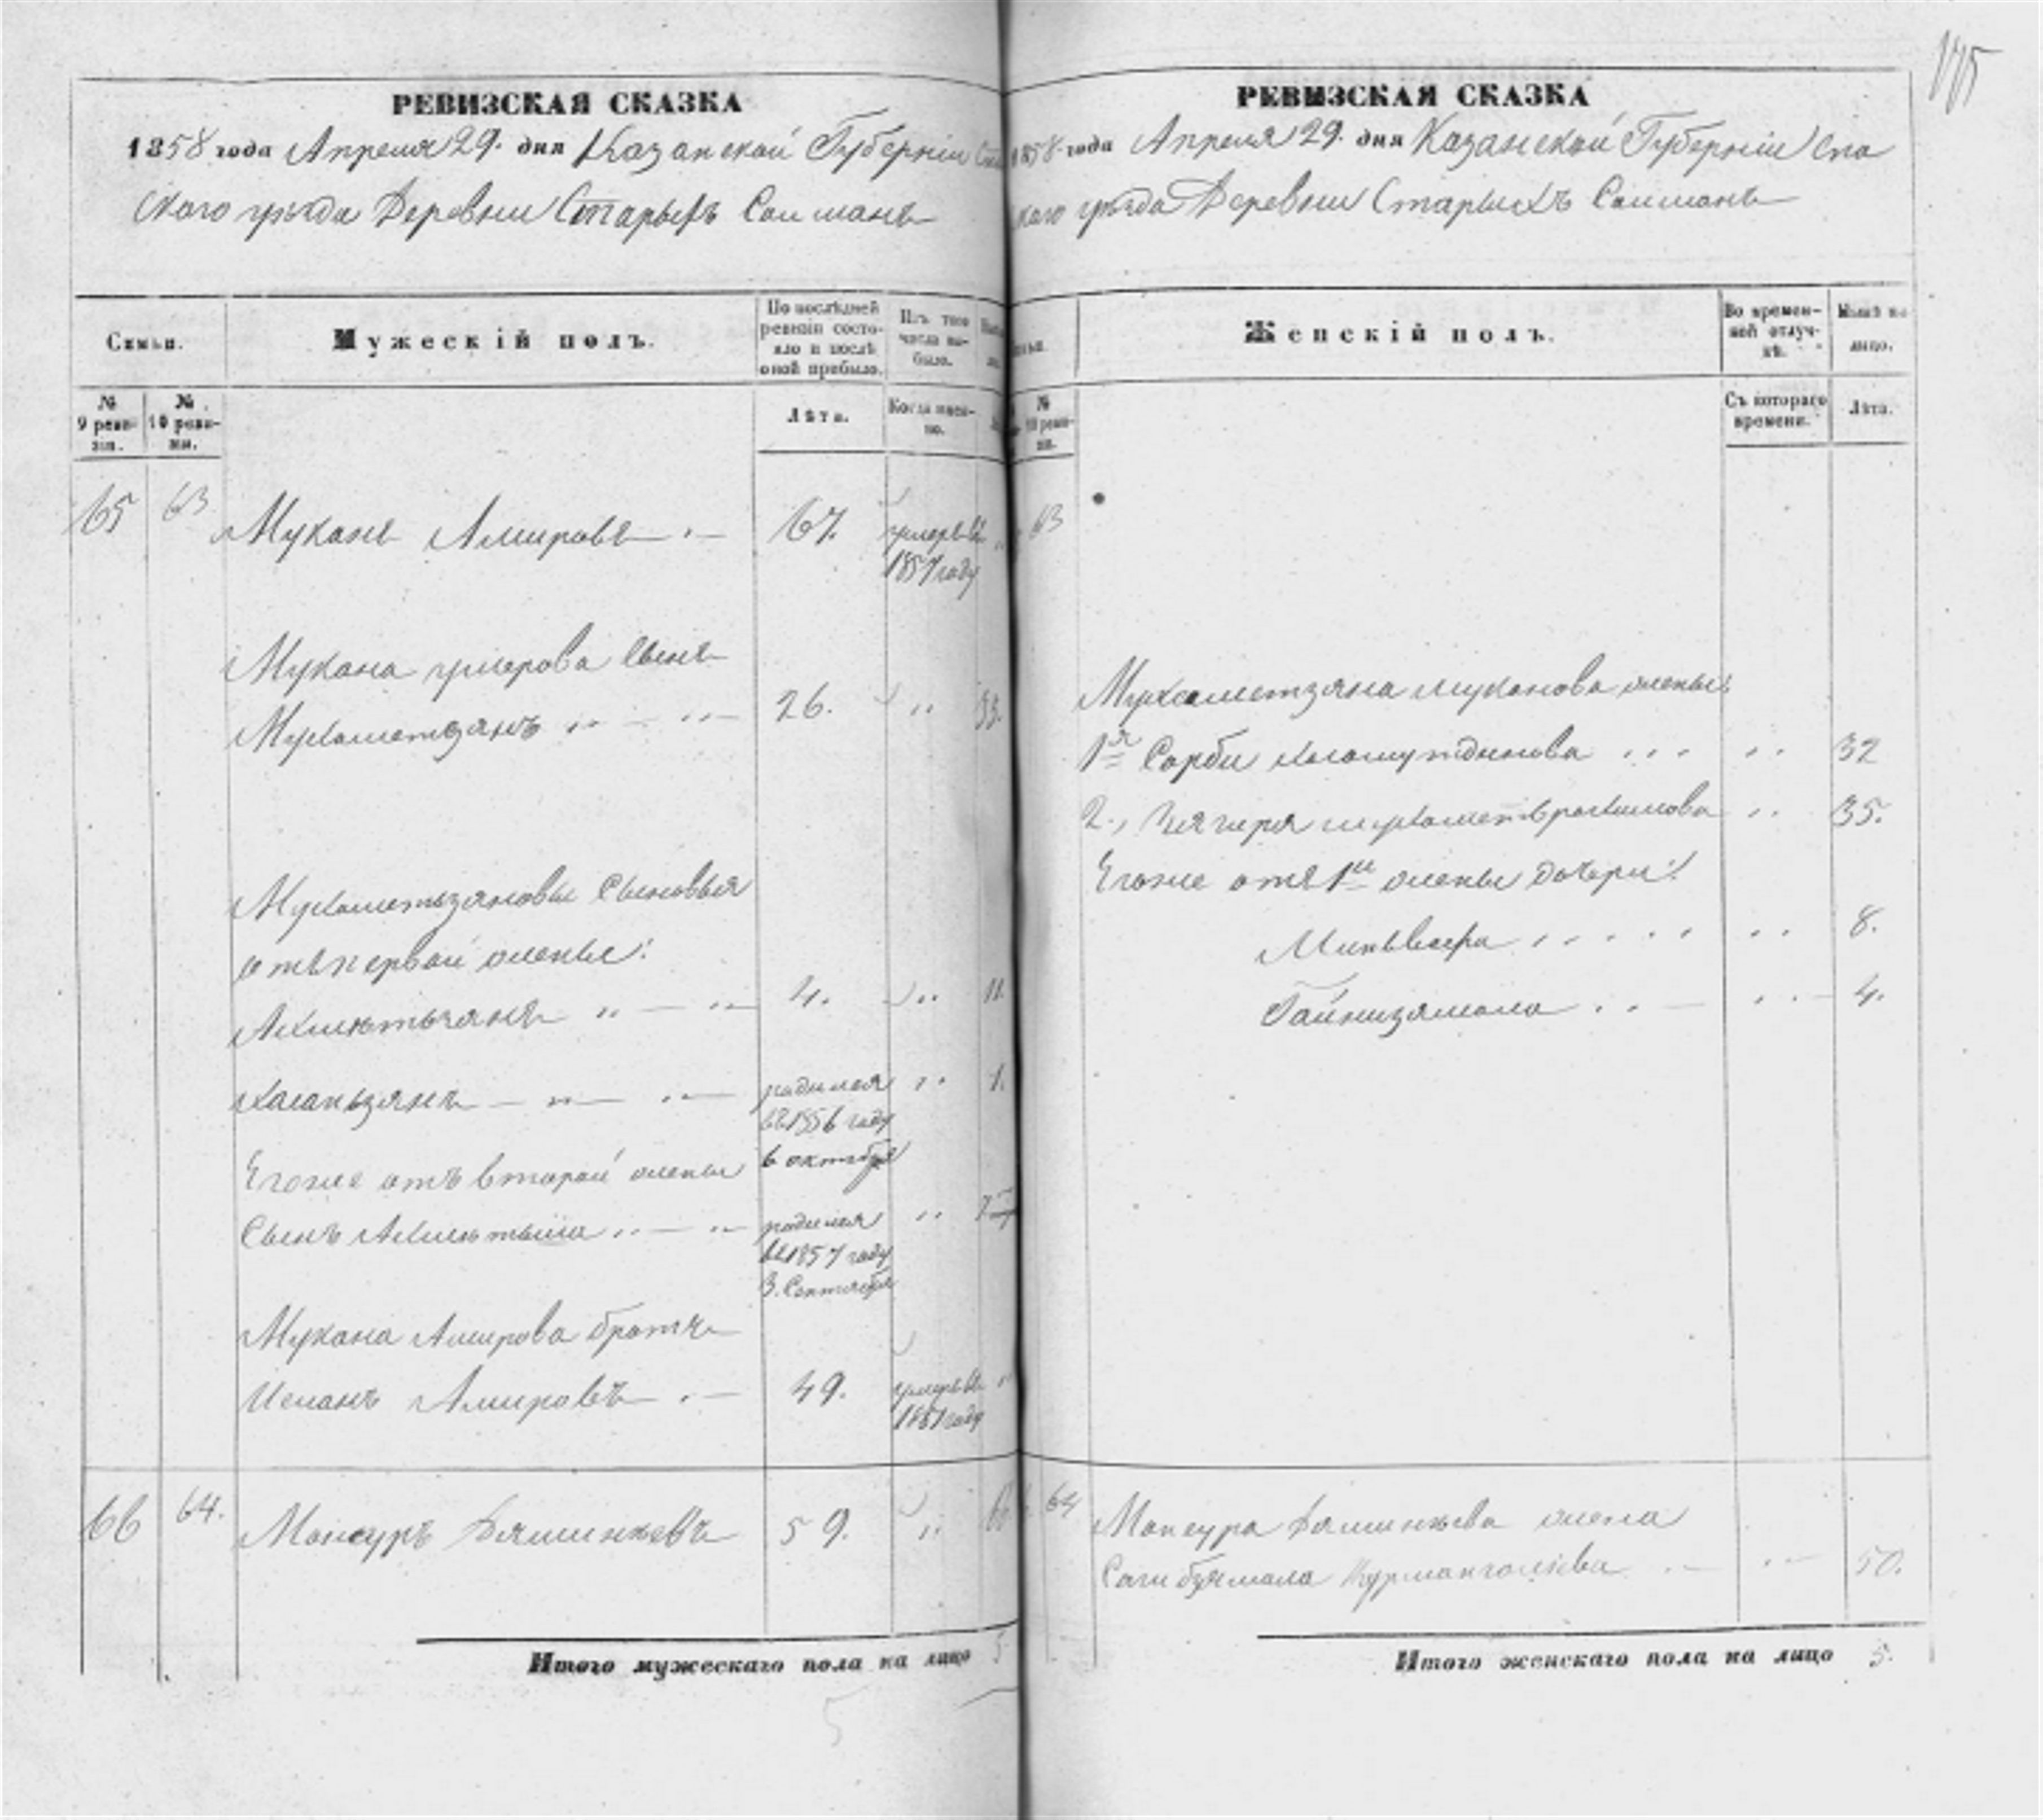 175
РЕВИЗСКАЯ СКАЗКА
1858 года Апреля 29. дня Казанской Губерніи Спас
скаго уѣзда Деревни Старыхъ Салманъ
Семьи.
Мужескій полъ.
По послѣдней ревизіи состояло и послѣ оной прибыло.
Изъ того числа выбыло.
№ 9 ревизіи.
№ 10 ревизіи.
Лѣта.
Когда именно.
65 63 Муканъ Амировъ 67. умеръ въ
1857 году
Мукана умерова сынъ
Мухаметзянъ 26. 33.
Мухаметьзяновы сыновья
отъ первой жены:
Ахметьзянъ 4. 11.
Хасаньзянъ родился 1.
въ 1856 году
Егоже отъ второй жены 6 октября
Сынъ Ахметьша родился
въ 1857 году
3. Сентября
Мукана Амирова братъ
Исланъ Амировъ 49. умеръ въ
1851 году
66 64. Мансуръ Даминѣевъ 59.
Итого мужескаго пола на лицо 5
5
РЕВИЗСКАЯ СКАЗКА
1858 года Апреля 29. дня Казанской Губерніи Спа
скаго уѣзда Деревни Старыхъ Салманъ
Женскій полъ.
Во временной отлучкѣ.
Нынѣ на лицо.
№ 10 ревизіи.
Съ котораго времени.
Лѣта.
63
Мухаметзяна муканова жены:
1я Сарби 32
2., мухаметьрахимова 35.
Егоже отъ 1й жены дочери:
8.
Гайнизямала 4.
64 Мансура Даминѣева жена
Сагибзямала Курмангалѣева 50.
Итого женскаго пола на лицо 5.